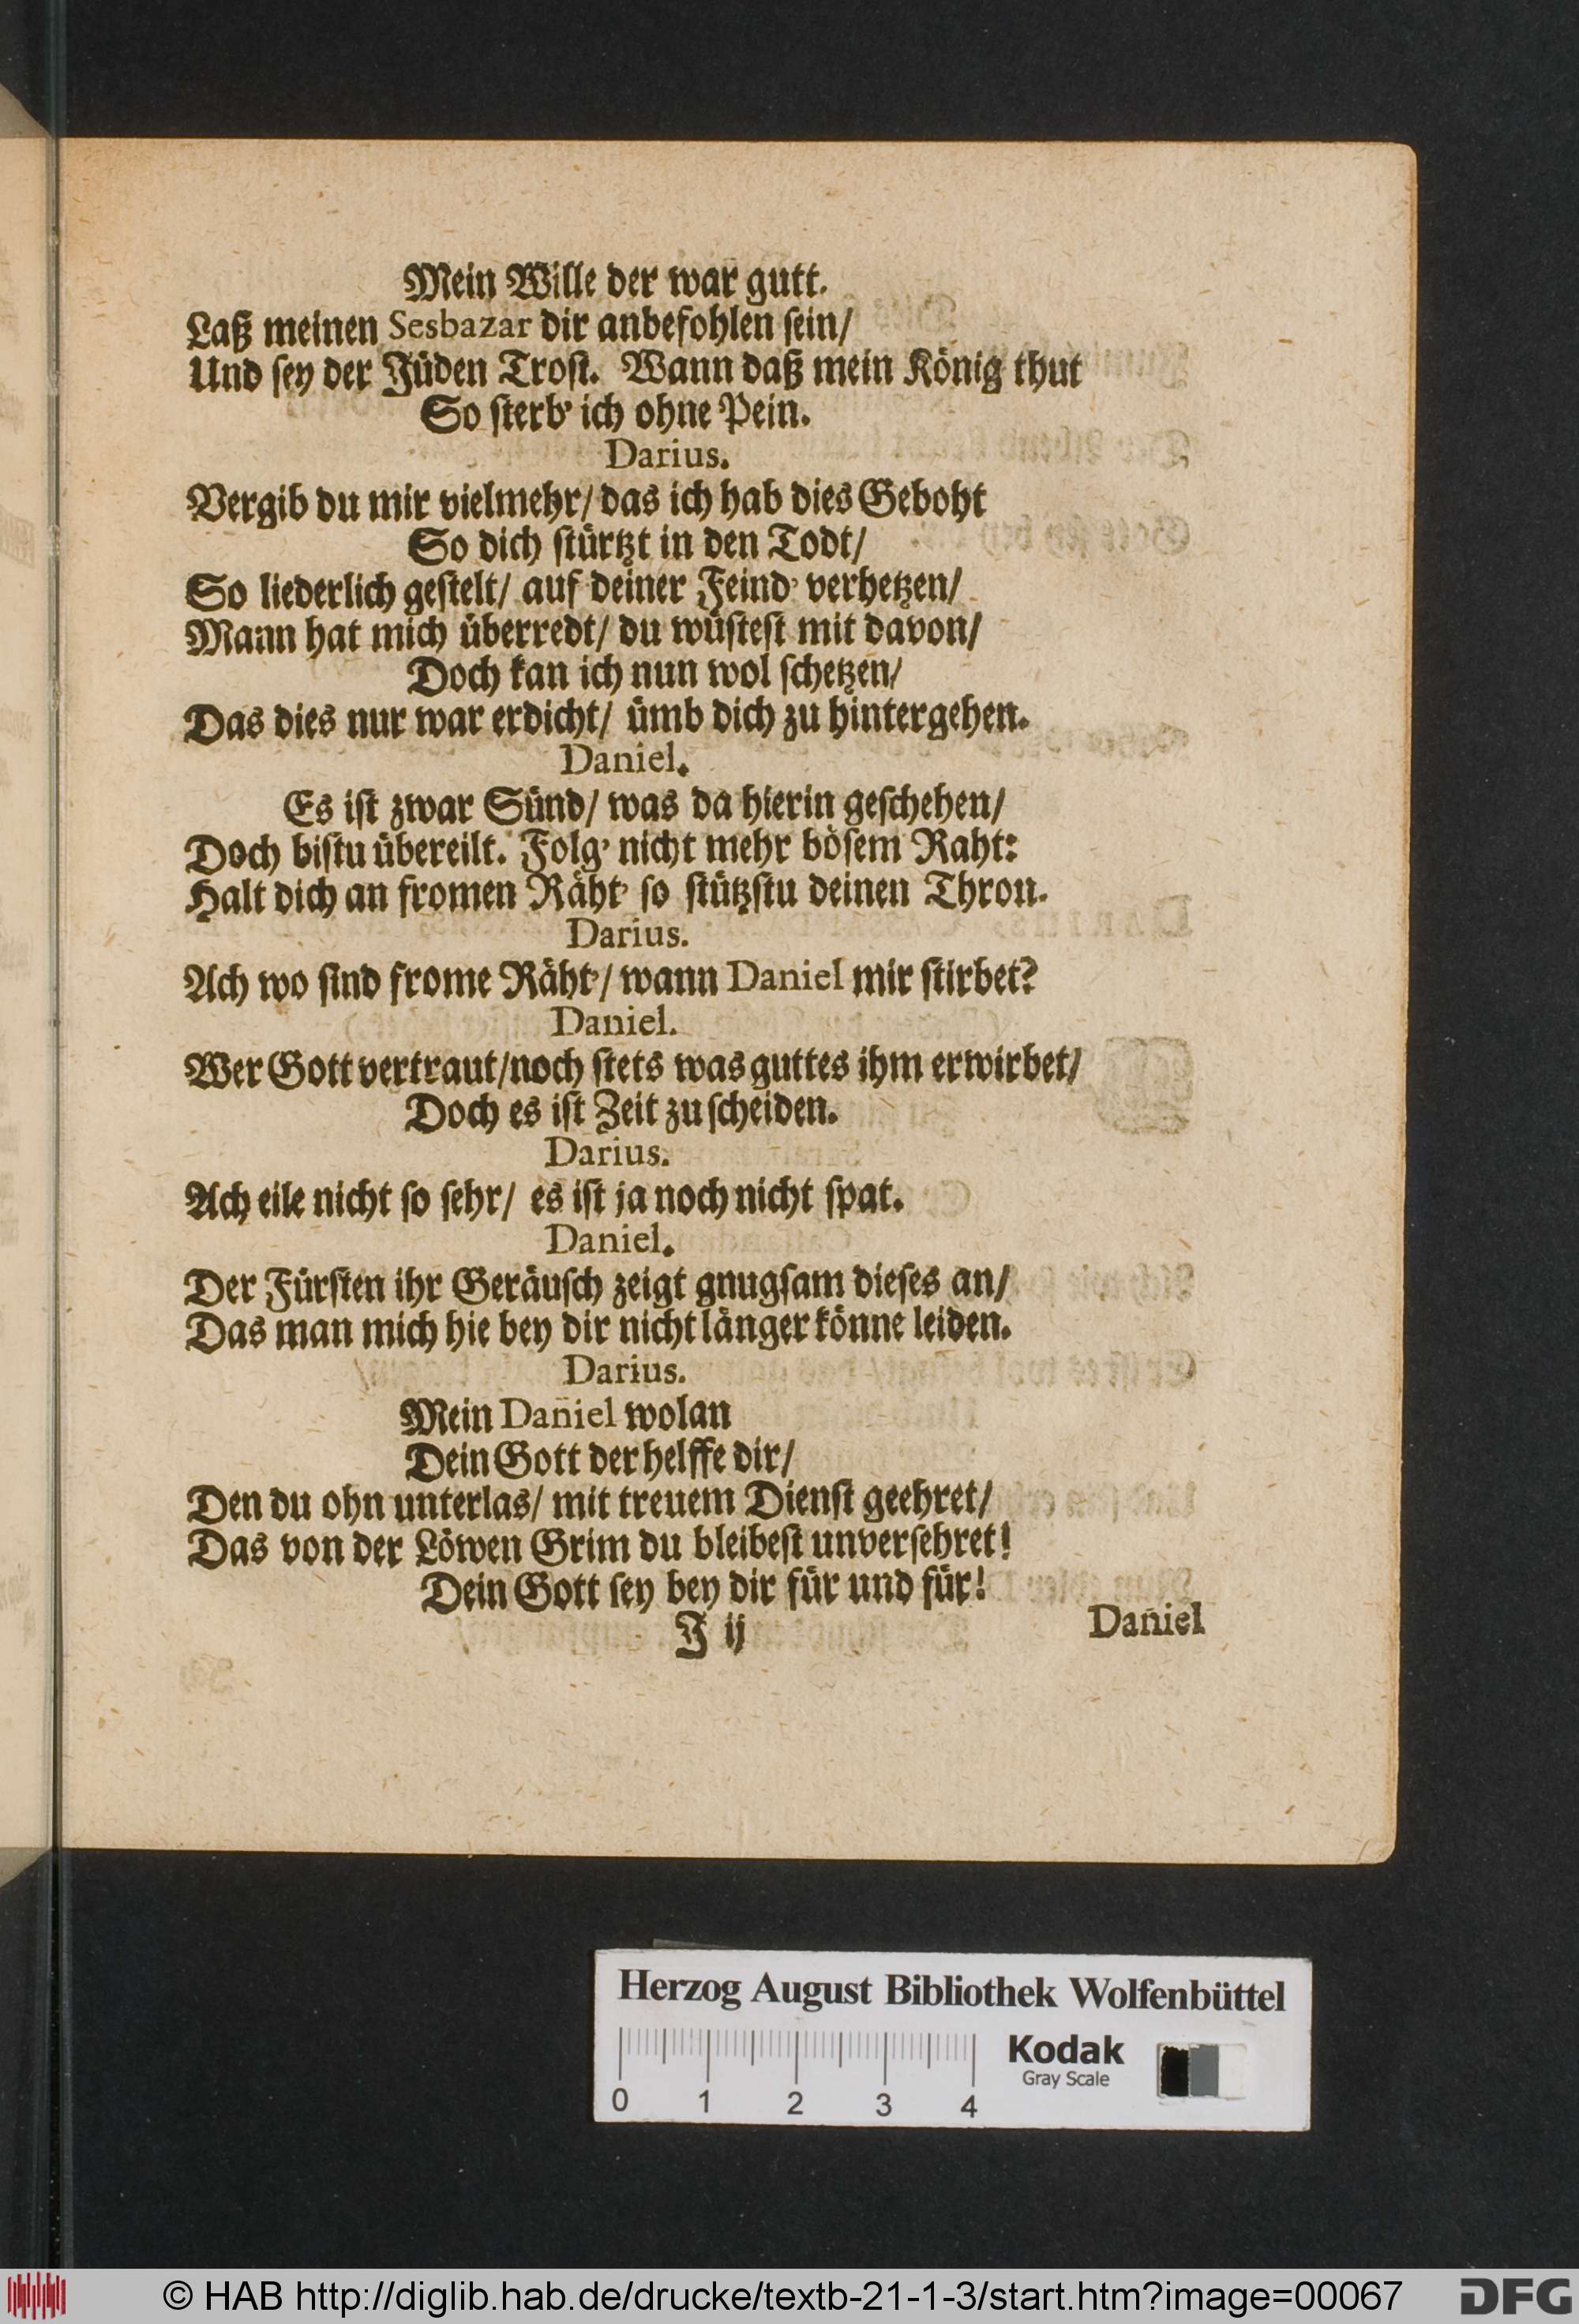 Mein Wille der war gutt.
Laß meinen Sesbazar dir anbefohlen ſein/
Und ſey der Jüden Troſt. Wann daß mein König thut
So ſterb' ich ohne Pein.
Darius.
Vergib du mir vielmehr/ das ich hab dies Geboht
So dich ſtürtzt in den Todt/
So liederlich geſtelt/ auf deiner Feind' verhetzen/
Mann hat mich überredt/ du wüſteſt mit davon/
Doch kan ich nun wol ſchetzen/
Das dies nur war erdicht/ ümb dich zu hintergehen.
Daniel.
Es iſt zwar Sünd/ was da hierin geſchehen/
Doch biſtu übereilt. Folg' nicht mehr böſem Raht:
Halt dich an fromen Räht' ſo ſtützſtu deinen Thron.
Darius.
Ach wo ſind frome Räht'/ wann Daniel mir ſtirbet?
Daniel.
Wer Gott vertraut/noch ſtets was guttes ihm erwirbet/
Doch es iſt Zeit zu ſcheiden.
Darius.
Ach eile nicht ſo ſehr/ es iſt ja noch nicht ſpat.
Daniel.
Der Fürſten ihr Geräuſch zeigt gnugſam dieſes an/
Das man mich hie bey dir nicht länger könne leiden.
Darius.
Mein Dañiel wolan
Dein Gott der helffe dir/
Den du ohn unterlas/ mit treuem Dienſt geehret/
Das von der Löwen Grim du bleibeſt unverſehret!
Dein Gott ſey bey dir für und für!
J ij
Dañiel
Herzog August Bibliothek Wolfenbüttel
Kodak
Gray Scale
0 1 2 3 4
© HAB http://diglib.hab.de/drucke/textb-21-1-3/start.htm?image=00067
DFG